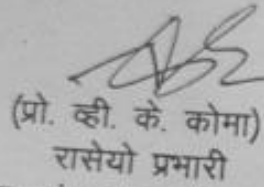 (प्रो. व्ही. के. कोमा)
रासेयो प्रभारी